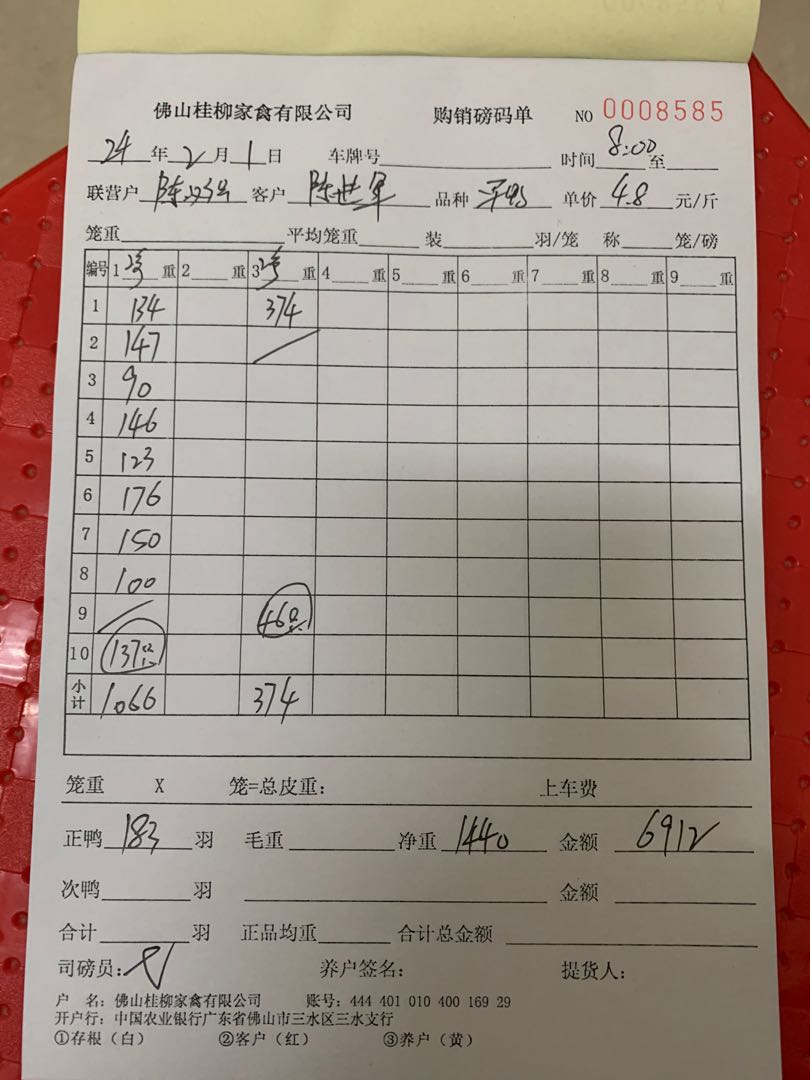 佛山桂柳家禽有限公司 购销磅码单 NO 0008585
24年2月1日 车牌号 时间8:00至
联营户 陈 客户 陈世军 品种 单价4.8元/斤
笼重 平均笼重 装 羽/笼 称 笼/磅
编号 1 2号 重 2 重 3 2号 重 4 重 5 重 6 重 7 重 8 重 9 重
1 134 374
2 147
3 90
4 146
5 123
6 176
7 150
8 100
9 46只
10 137只
小计 1066 374
笼重 X 笼=总皮重: 上车费
正鸭183羽 毛重 净重1440 金额6912
次鸭 羽 金额
合计 羽 正品均重 合计总金额
司磅员: 养户签名: 提货人:
户 名: 佛山桂柳家禽有限公司 账号: 444 401 010 400 169 29
开户行: 中国农业银行广东省佛山市三水区三水支行
①存根(白) ②客户(红) ③养户(黄)